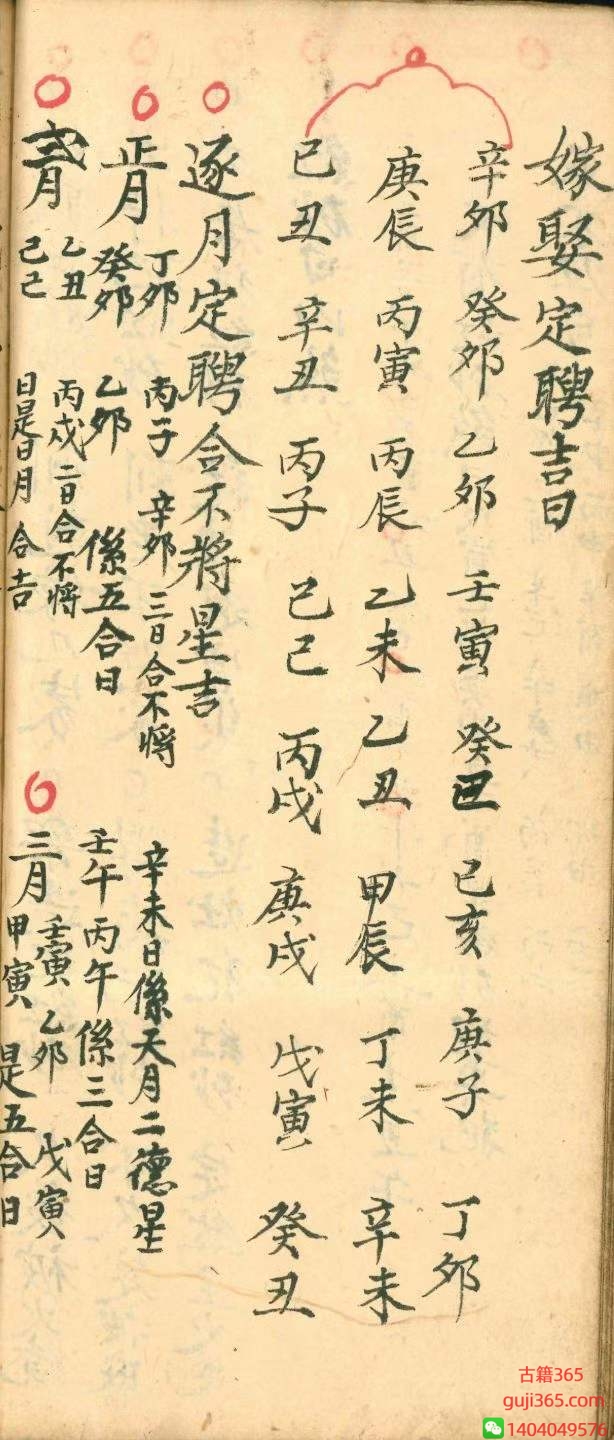 嫁娶定聘吉日
辛卯 癸卯 乙卯 壬寅 癸丑 己亥 庚子 丁卯
庚辰 丙寅 丙辰 乙未 乙丑 甲辰 丁未 辛未
己丑 辛丑 丙子 己巳 丙戌 庚戌 戊寅 癸丑
逐月定聘合不將星吉
正月 丁卯 丙子 辛卯 三日合不將
癸卯 乙卯 係五合日
辛未日係天月二德星
壬午 丙午係三合日
弍月 乙丑 丙戌 二日合不將
己巳日是日月合吉
三月 壬寅 乙卯 戊寅
甲寅 是五合日
古籍365
guji365.com
1404049576